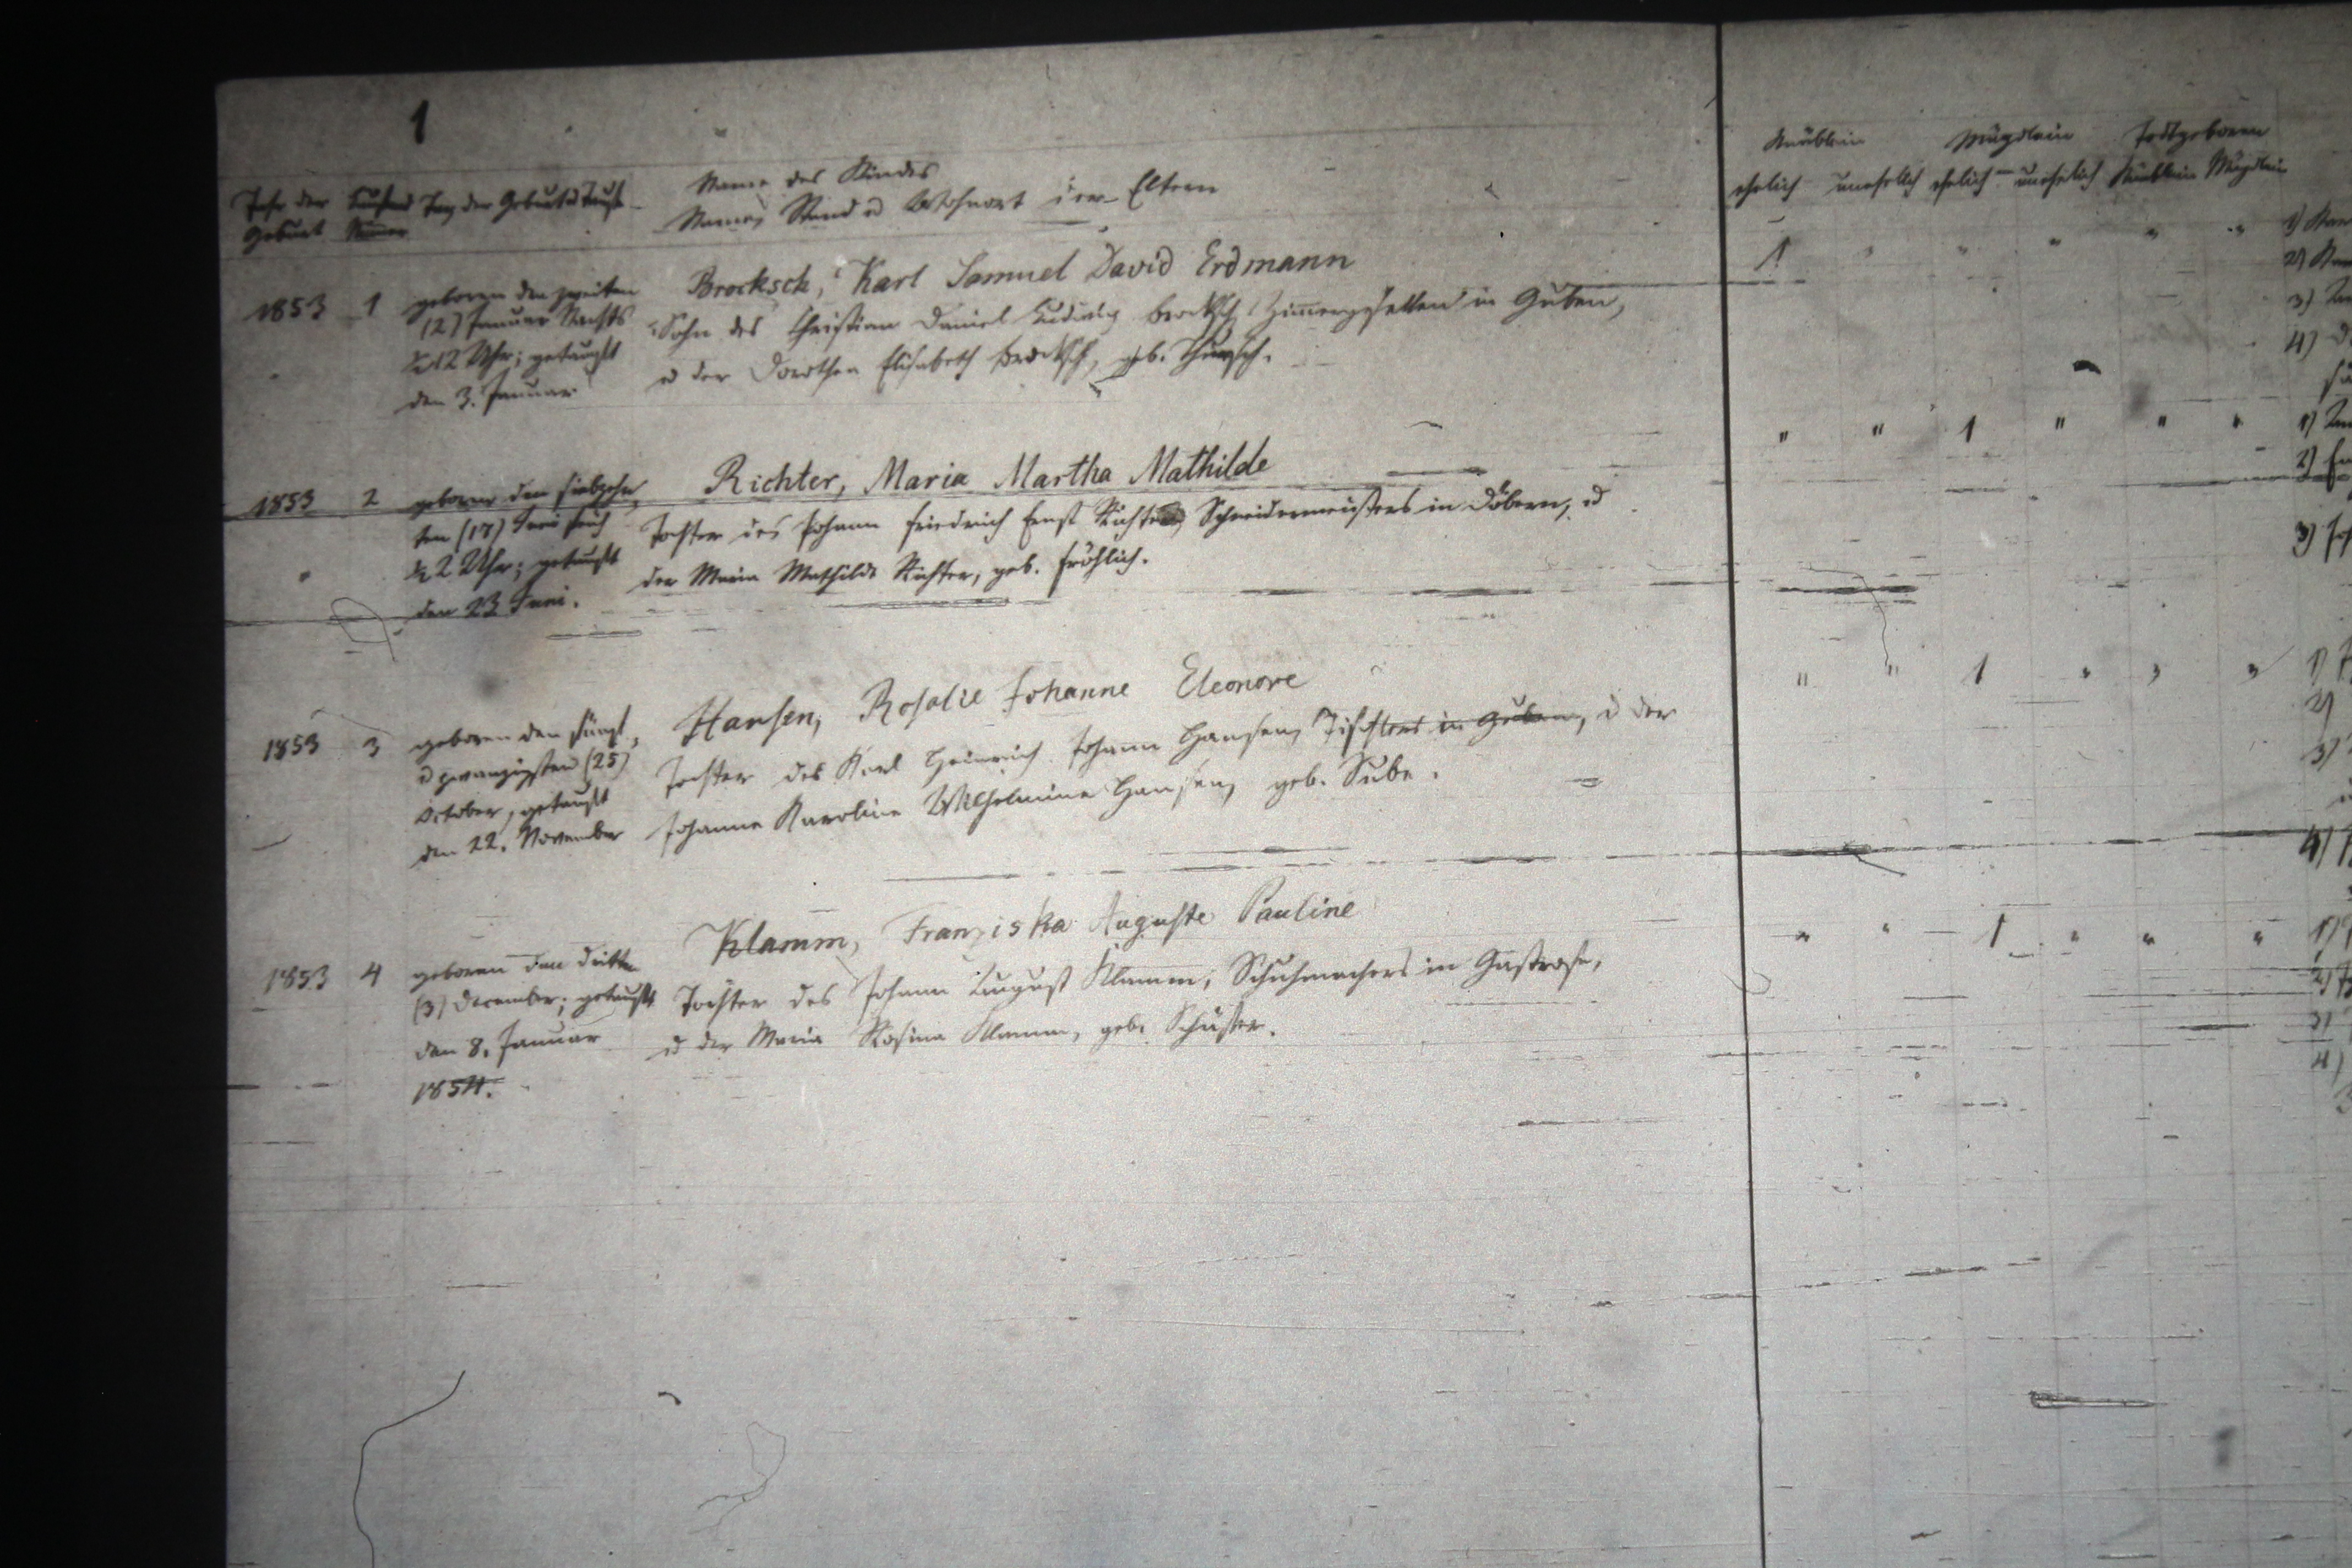 1
Jahr der Geburt
Laufend Numer
Tag der Geburt u Taufe
Name des Kindes
Name, Stand u Wohnort der Eltern
Knäblein Mägdlein Todtgeboren
ehelich unehelich ehelich unehelich Knäblein Mägdlein
1853 1 geboren den zweiten
(2) Januar Nachts
12 Uhr; getauft
den 3. Januar
Brocksch, Karl Samuel David Erdmann
Sohn des Christian Daniel Ludwig Brocksch, Zimmergesellen in Guben,
u der Dorothea Elisabeth Brocksch, geb.
1 " " " " "
1853 2 geboren den siebzehn
ten (17) Juni früh
2 Uhr; getauft
den 23 Juni.
Richter, Maria Martha Mathilde
Tochter des Johann Friedrich Ernst Richter, Schneidermeisters in Döbern, u
der Maria Mathilde Richter, geb. Fröhlich.
" " 1 " " "
1853 3 geboren den fünf
u zwanzigsten (25)
October, getauft
den 22. November
Hansen, Rosalie Johanne Eleonore
Tochter des Karl Heinrich Johann Hansen, Tischlers in Guben, u der
Johanne Karoline Wilhelmine Hansen, geb. Sube.
" " 1 " " "
1853 4 geboren den dritten
(3) December; getauft
den 8. Januar
1854.
Klamm, Franziska Auguste Pauline
Tochter des Johann August Klamm, Schuhmachers in Gastrose,
u der Maria Rosina Klamm, geb. Schuster.
" " 1 " " "